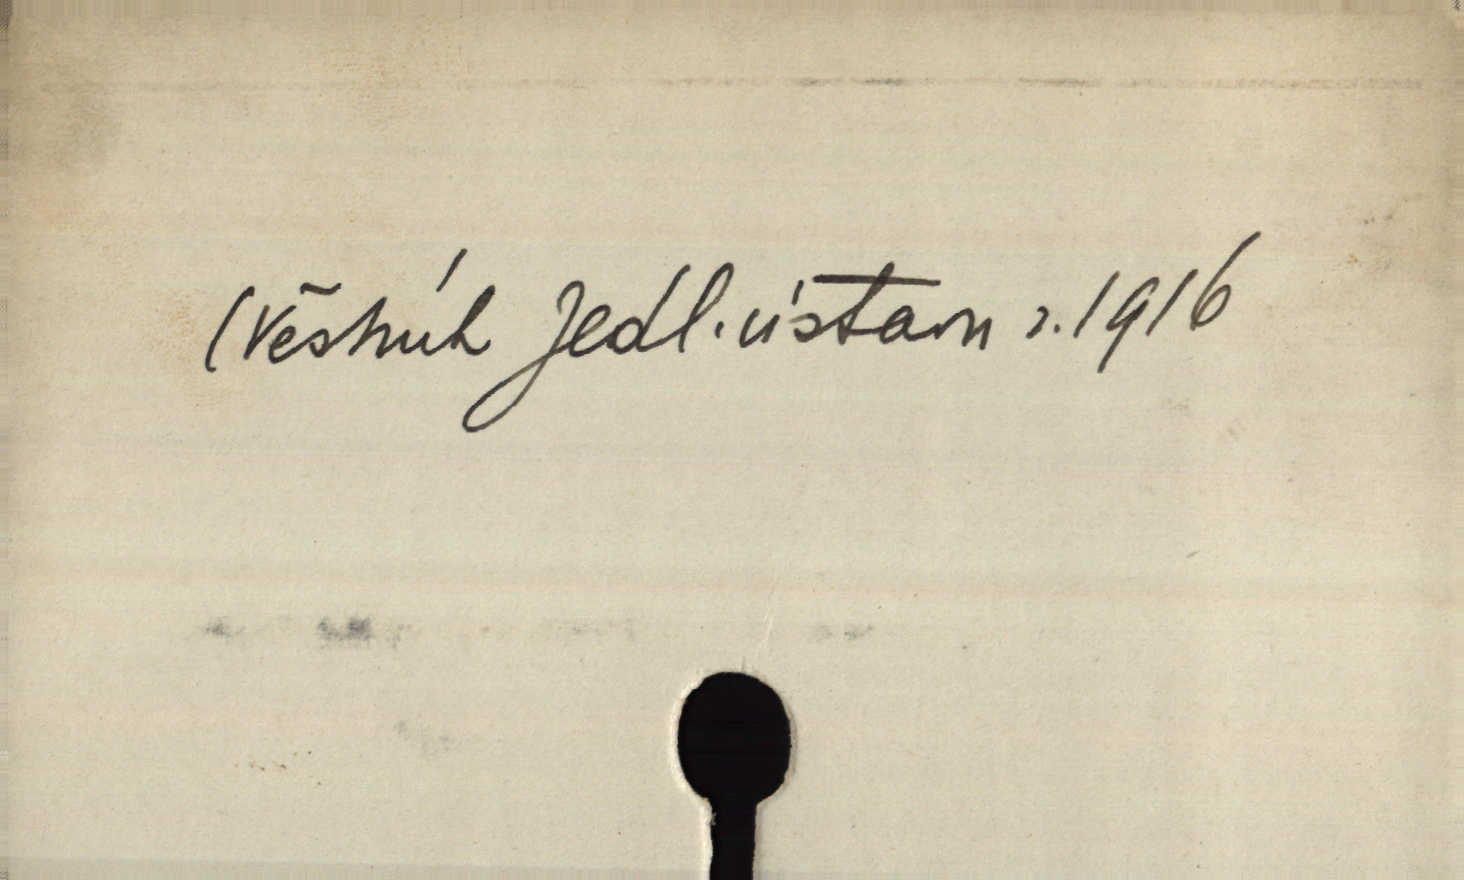 (Věstník Jedl. ústavu r. 1916